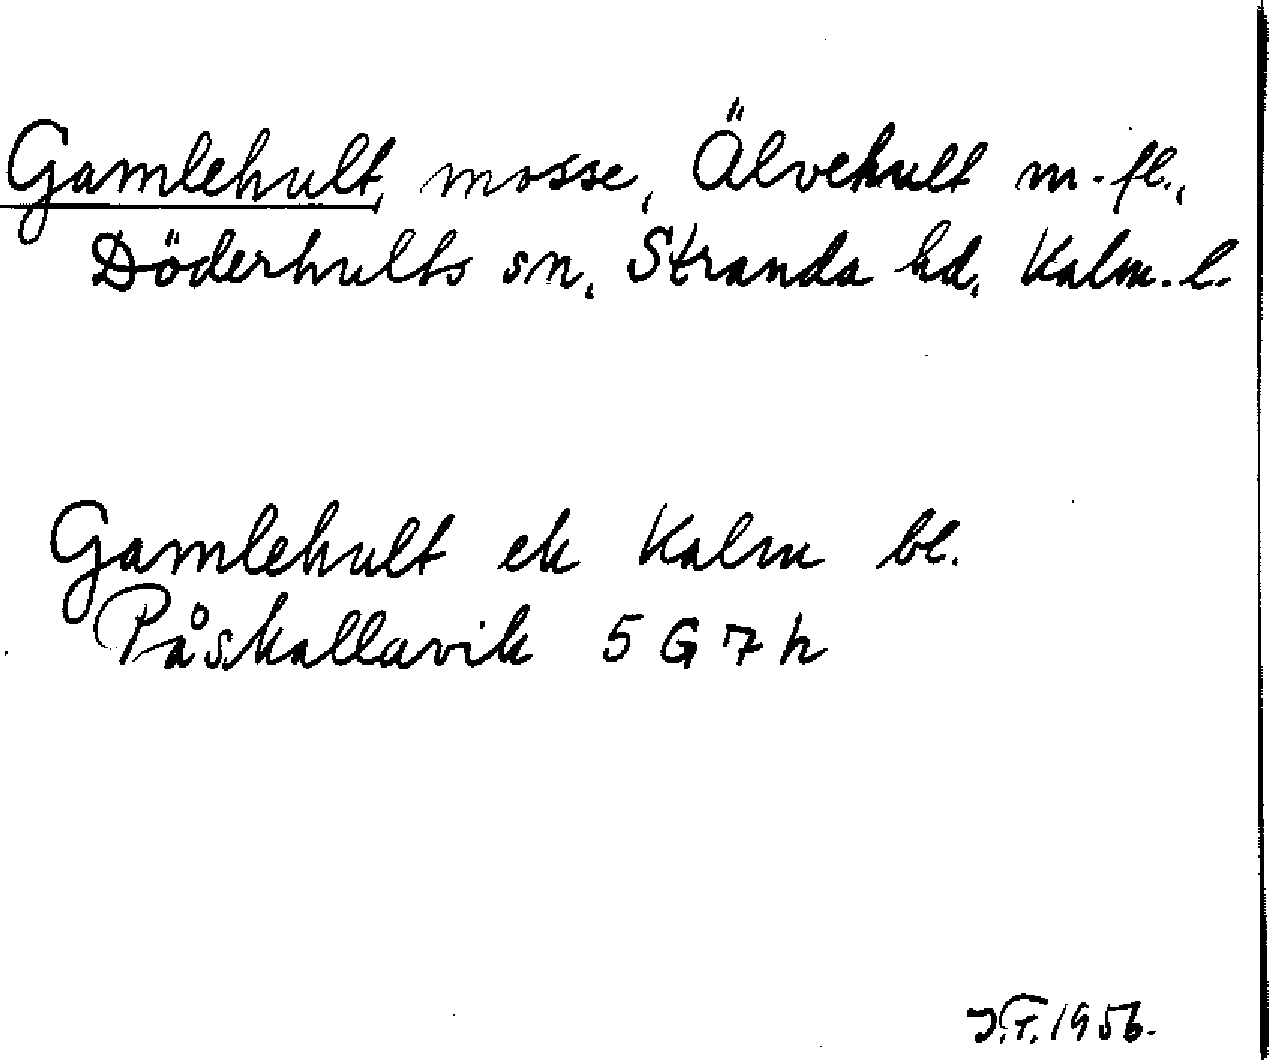 Gamlehult, mosse, Älvehult m.fl.,
Döderhults sn, Stranda hd, Kalm. l.
Gamlehult ek Kalm bl.
Påskallavik 5 G 7 h
J.F. 1956.